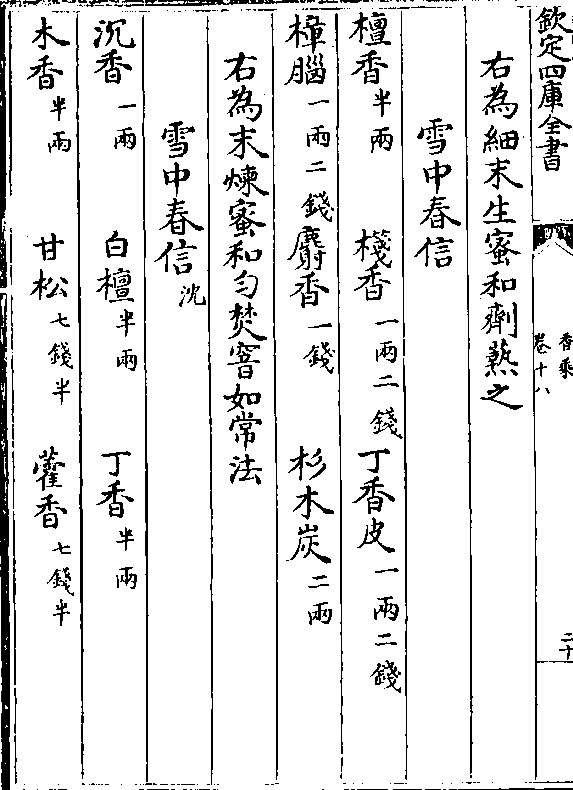 欽定四庫全書
香乘
卷十八
二十
右為細末生蜜和劑爇之
雪中春信
檀香半兩 棧香一兩二錢 丁香皮一兩二錢
樟腦一兩二錢 麝香一錢 杉木炭二兩
右為末煉蜜和勻焚窨如常法
雪中春信沈
沉香一兩 白檀半兩 丁香半兩
木香半兩 甘松七錢半 藿香七錢半